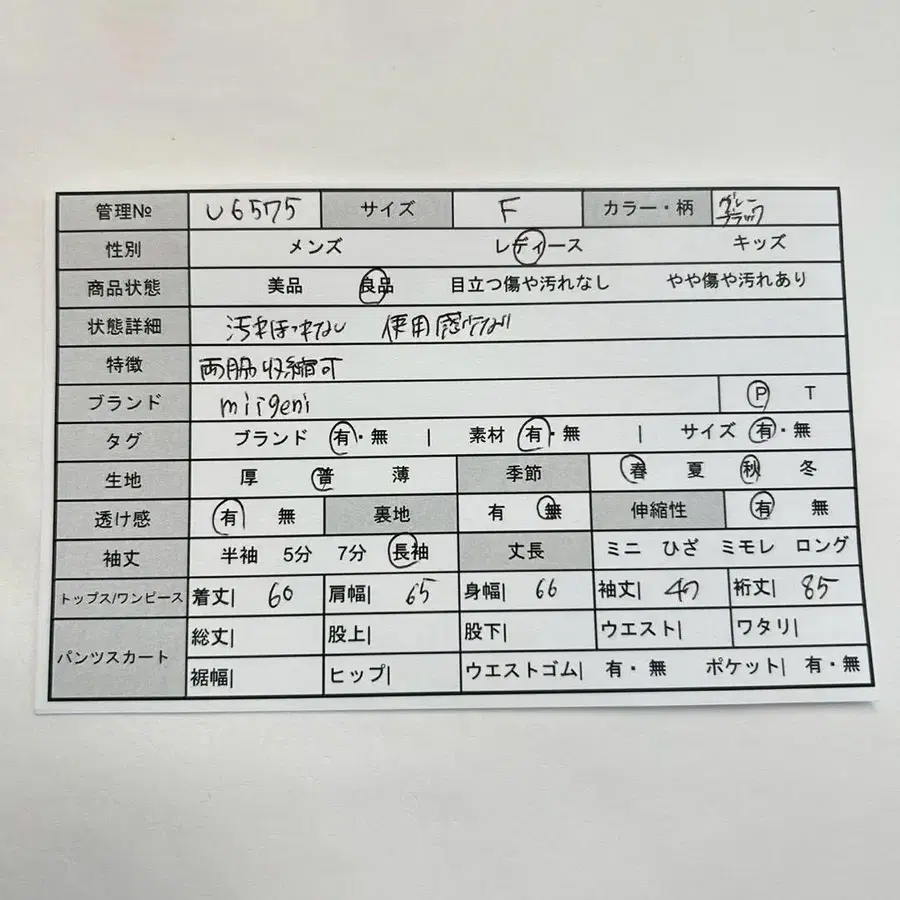 管理№ U6575 サイズ F カラー・柄 グレー ブラック
性別 メンズ レディース キッズ
商品状態 美品 良品 目立つ傷や汚れなし やや傷や汚れあり
状態詳細 汚れほつれなし 使用感
特徴 両脇収縮可
ブランド miigeni P T
タグ ブランド 有・無 | 素材 有・無 | サイズ 有・無
生地 厚 普 薄 季節 春 夏 秋 冬
透け感 有 無 裏地 有 無 伸縮性 有 無
袖丈 半袖 5分 7分 長袖 丈長 ミニ ひざ ミモレ ロング
トップス/ワンピース 着丈| 60 肩幅| 65 身幅| 66 袖丈| 裄丈| 85
パンツスカート 総丈| 股上| 股下| ウエスト| ワタリ|
裾幅| ヒップ| ウエストゴム| 有・無 ポケット| 有・無